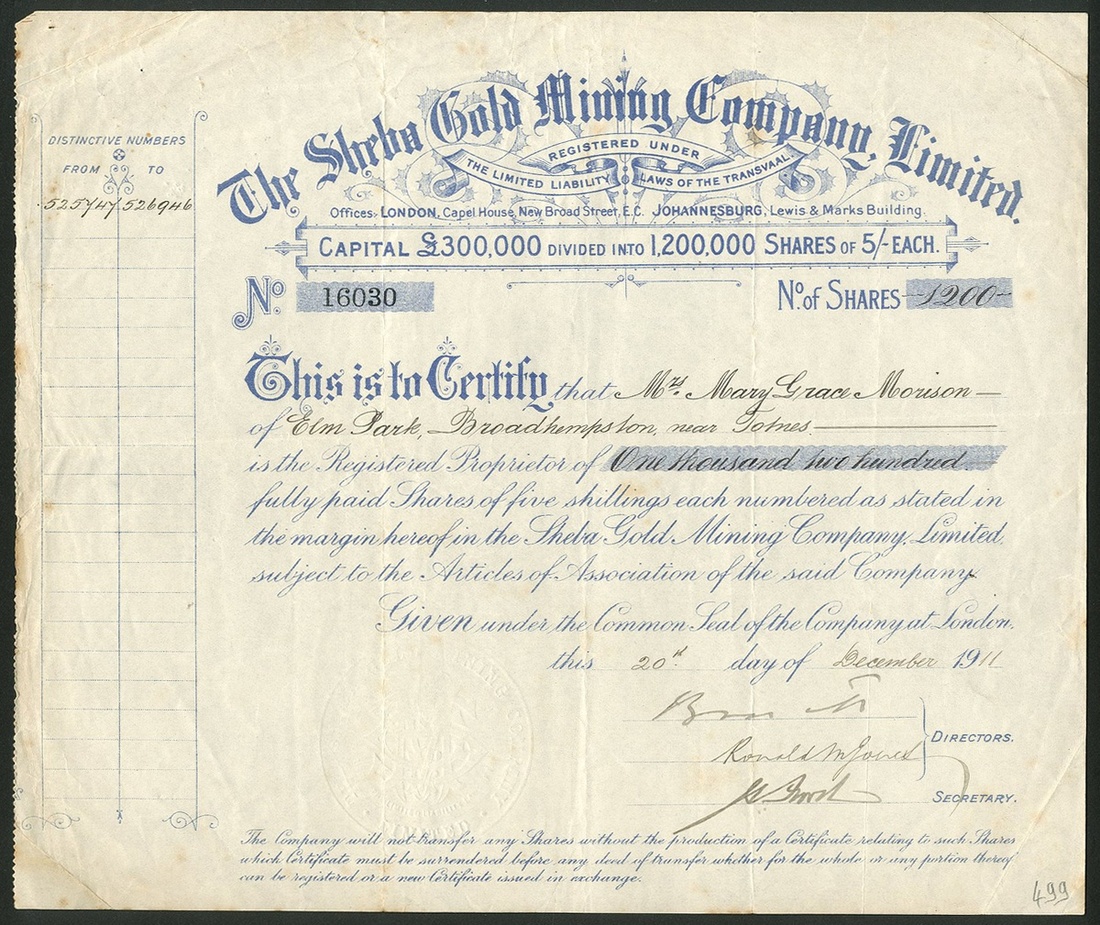 The Sheba Gold Mining Company, Limited.
REGISTERED UNDER
THE LIMITED LIABILITY LAWS OF THE TRANSVAAL.
Offices:- LONDON, Capel House, New Broad Street, E.C. JOHANNESBURG, Lewis & Marks Building.
CAPITAL £300,000 DIVIDED INTO 1,200,000 SHARES OF 5/- EACH.
DISTINCTIVE NUMBERS
FROM TO
525747 526946
No. 16030
No. of SHARES 1200
This is to Certify that Mrs. Mary Grace Morison
of Elm Park, Broadhempston, near Totnes.
is the Registered Proprietor of One thousand two hundred
fully paid Shares of five shillings each numbered as stated in
the margin hereof in the Sheba Gold Mining Company, Limited,
subject to the Articles of Association of the said Company.
Given under the Common Seal of the Company at London.
this 20th day of December 1911
DIRECTORS.
Ronald M Jones
SECRETARY.
The Company will not transfer any Shares without the production of a Certificate relating to such Shares
which Certificate must be surrendered before any deed of transfer whether for the whole or any portion thereof
can be registered or a new Certificate issued in exchange.
499